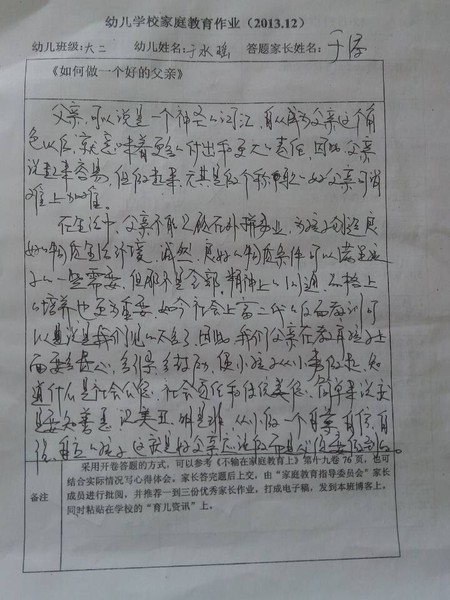 幼儿学校家庭教育作业（2013.12）
幼儿班级:大二 幼儿姓名:于水瑶 答题家长姓名:于泽
《如何做一个好的父亲》
父亲,可以说是一个神圣的词汇,自从成为父亲这个角
色以后,就意味着更多的付出和更大的责任,因为父亲
说起来容易,但做起来,尤其是做个称职的好父亲可谓
难上加难。
在生活中,父亲不能只顾在外拼事业,为孩子创造良
好的物质生活环境,诚然,良好的物质条件可以满足孩
子的一些需要,但那不是全部,精神上的沟通,品格上
的培养也至为重要,如今社会上富二代的反面教训可
以说是我们见的太多了,因此,我们父亲在教育孩子上
面要多操心,多引导,多鼓励,使小孩子从小事做起,知
道什么是社会公德,社会责任和传统美德,简单来说就
是要知善恶,识美丑,明是非,从小做一个自尊,自信,自
强,自立的孩子
采用开卷答题的方式，可以参考《不输在家庭教育上》第十九卷76页，也可
结合实际情况写心得体会。家长答完题后上交，由“家庭教育指导委员会”家长
成员进行批阅，并推荐一到三份优秀家长作业，打成电子稿，发到本班博客上。
备注
同时粘贴在学校的“育儿资讯”上。